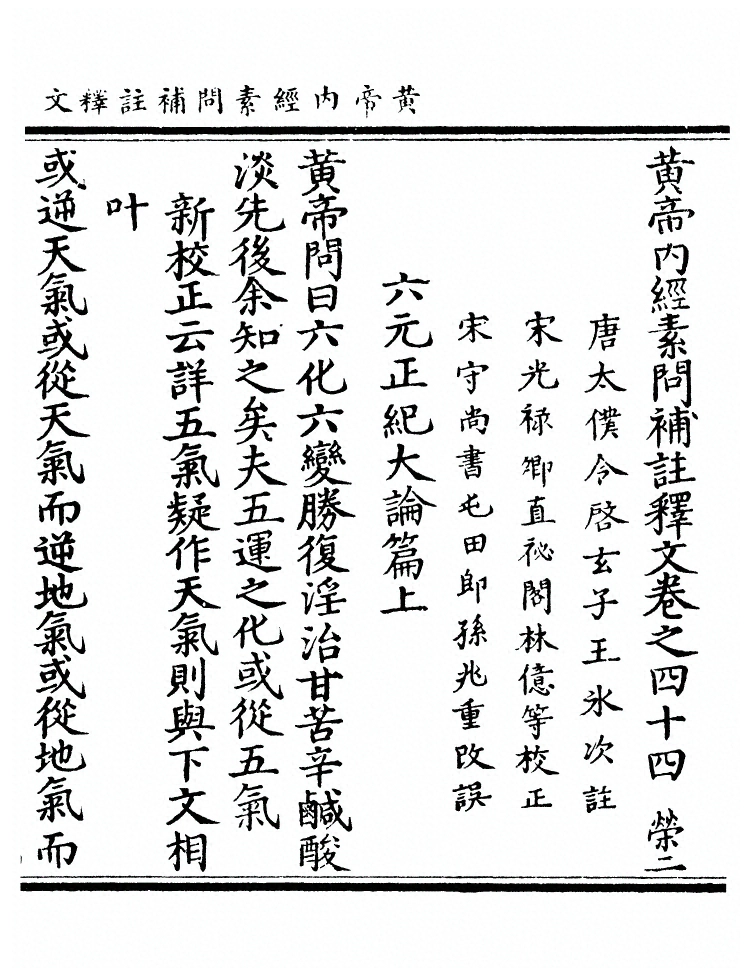 黄帝内經素問補註釋文
黄帝内經素問補註釋文卷之四十四 榮二
唐太僕令啓玄子王冰次註
宋光祿卿直祕閣林億等校正
宋守尚書屯田郎孫兆重改誤
六元正紀大論篇上
黄帝問曰六化六變勝復淫治甘苦辛鹹酸
淡先後余知之矣夫五運之化或從五氣
新校正云詳五氣疑作天氣則與下文相
叶
或逆天氣或從天氣而逆地氣或從地氣而